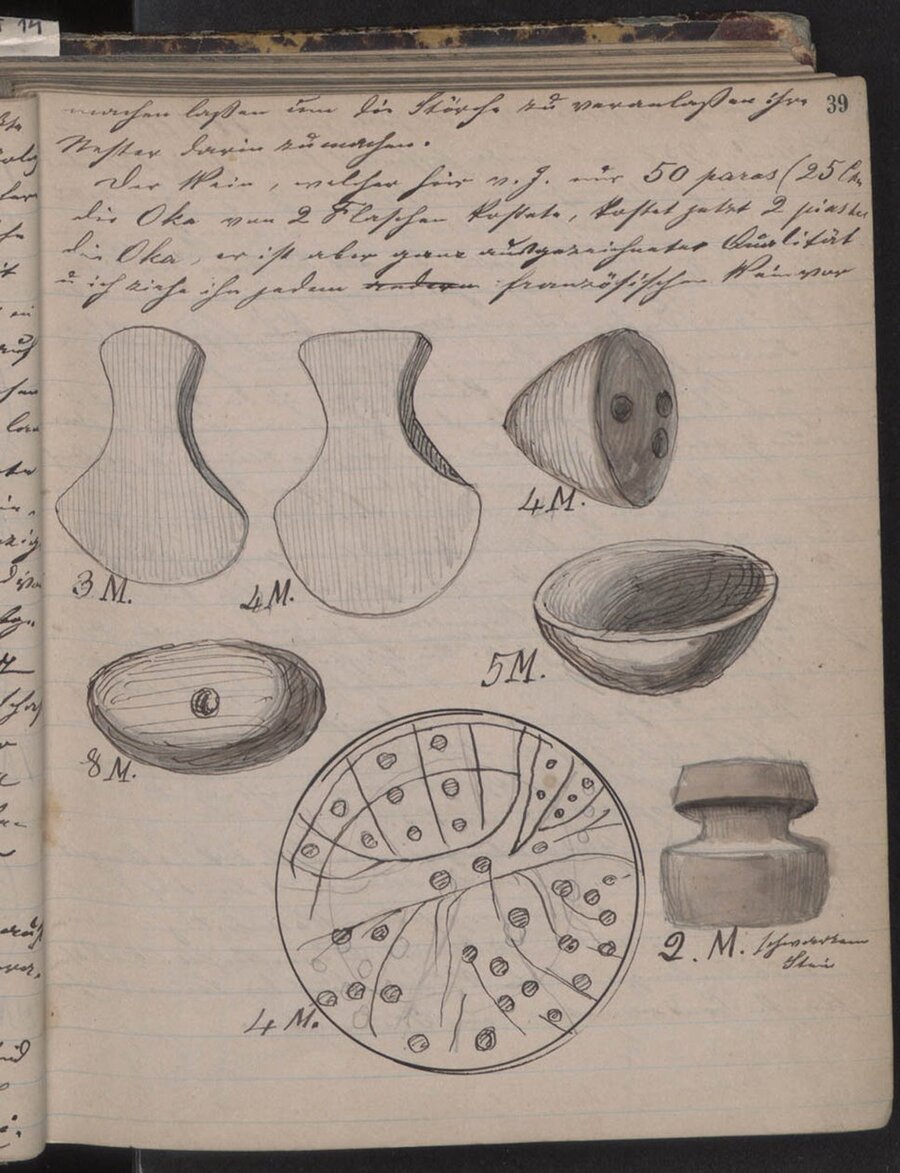 39
machen laßen um die Störche zu veranlaßen ihre
Nester darin zu machen.
Der Wein, welcher hier v. J. nur 50 paras (25 Ct
die Oka von 2 Flaschen kostete, kostet jetzt 2 piaster
die Oka, er ist aber ganz ausgezeichneter Qualität
u ich ziehe ihn jedem andern französischen Wein vor
4 M.
3 M.
4 M.
5 M.
8 M.
2. M. schwarzem
Stein
4 M.